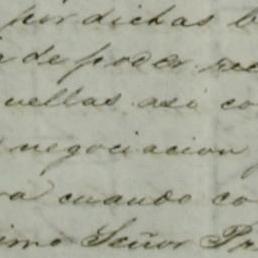 por dichas
de poder
uellas asi co
negociacion
va cuando co
imo Señor Pr